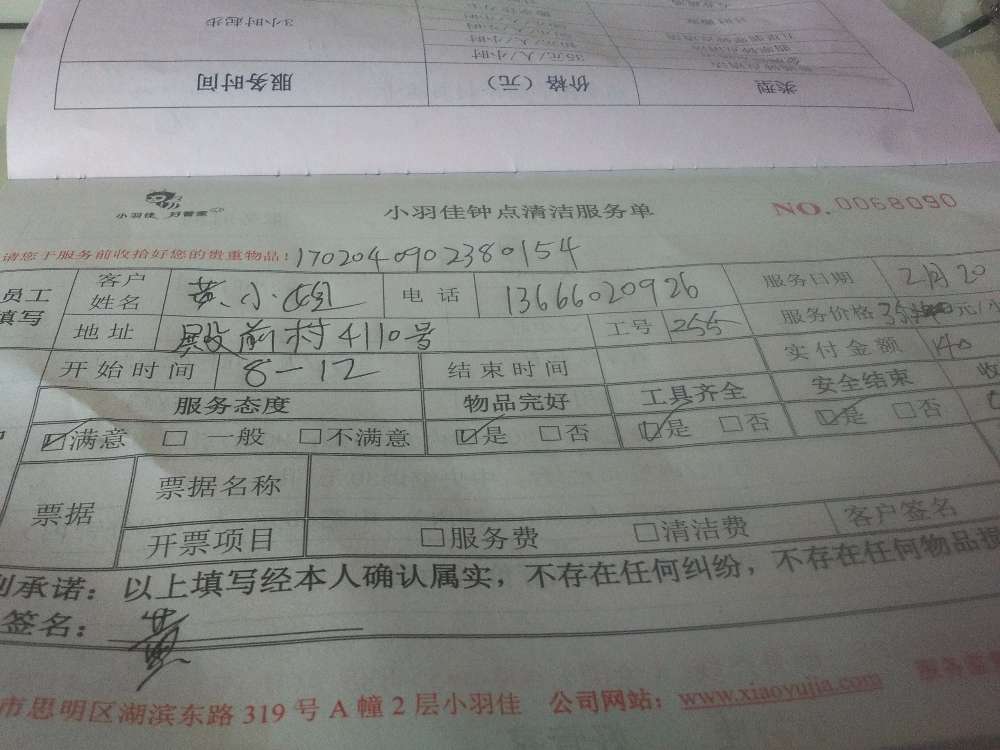 3小时起步
35元/人/小时
服务时间 价格(元) 类型
小羽佳 好管家
小羽佳钟点清洁服务单
NO.0068090
请您于服务前收拾好您的贵重物品!
1702040902380154
员工填写
客户姓名 黄小姐 电话 13666020926 服务日期 2月20
地址 殿前村4110号 工号 255 服务价格 35 元/小
开始时间 8-12 结束时间 实付金额 140
服务态度 物品完好 工具齐全 安全结束 收
☑满意 □一般 □不满意 ☑是 □否 ☑是 □否 ☑是 □否
票据 票据名称
开票项目 □服务费 □清洁费 客户签名
承诺:以上填写经本人确认属实,不存在任何纠纷,不存在任何物品损
签名: 黄
市思明区湖滨东路319号A幢2层小羽佳 公司网站:www.xiaoyujia.com 服务监